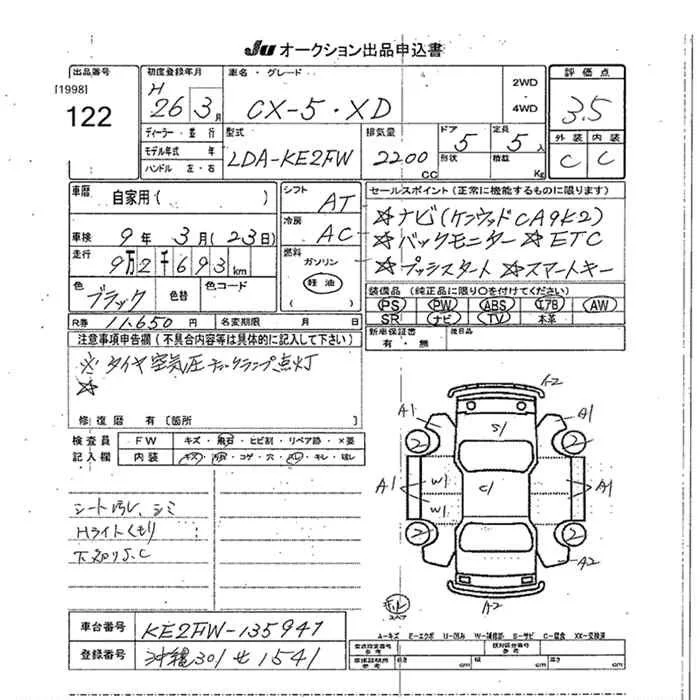 JU オークション出品申込書
出品番号
[1998]
122
初度登録年月
H
26 3月
車名・グレード
CX-5・XD
2WD
4WD
評価点
3.5
外装 内装
C C
ディーラー・並行
モデル年式 年
ハンドル 左・右
型式
LDA-KE2FW
排気量
2200 CC
ドア 5
形状
定員 5 人
積載 Kg
車歴 自家用 ( )
シフト AT
冷房 AC
燃料
ガソリン
軽油
( )
車検 9年 3月(23日)
走行 9万2千693km
色 ブラック
色替
色コード
R券 11,650 円 名変期限 月 日
セールスポイント(正常に機能するものに限ります)
☆ナビ(ケンウッドCA9K2)
☆バックモニター ☆ETC
☆プッシスタート ☆スマートキー
装備品 (純正品に限り○を付けてください)
PS PW ABS エアB AW
SR ナビ TV 本革
新車保証書 後日品
有・無
注意事項申告欄(不具合内容等は具体的に記入して下さい)
※タイヤ空気圧チェックランプ点灯
☆
修復歴 有〔箇所
検査員 FW キズ・飛石・ヒビ割・リペア跡・×要
記入欄 内装
シート汚レ、シミ
Hライトくもり
下廻りS.C
A2
A1 A1
S/
2 2
A1 W1 C/ A1
W1
2 2
A1 A2
A2
A-キズ E-エクボ U-凹み W-補修跡 S-サビ C-腐食 XX-交換済
車台番号 KE2FW-135947
登録番号 沖縄301せ1541
型式指定番号
類別区分番号
参考
長さ cm 幅 cm 高さ cm